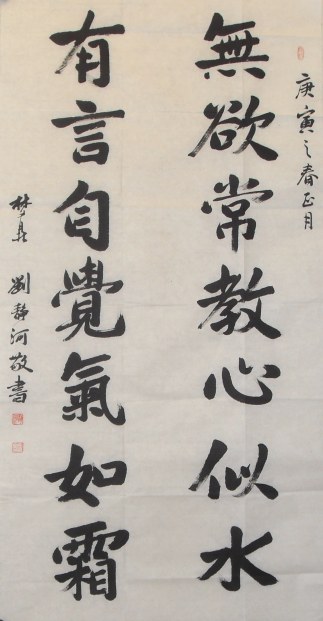 庚寅之春正月
無欲常教心似水
有言自覺氣如霜
劉靜河敬書